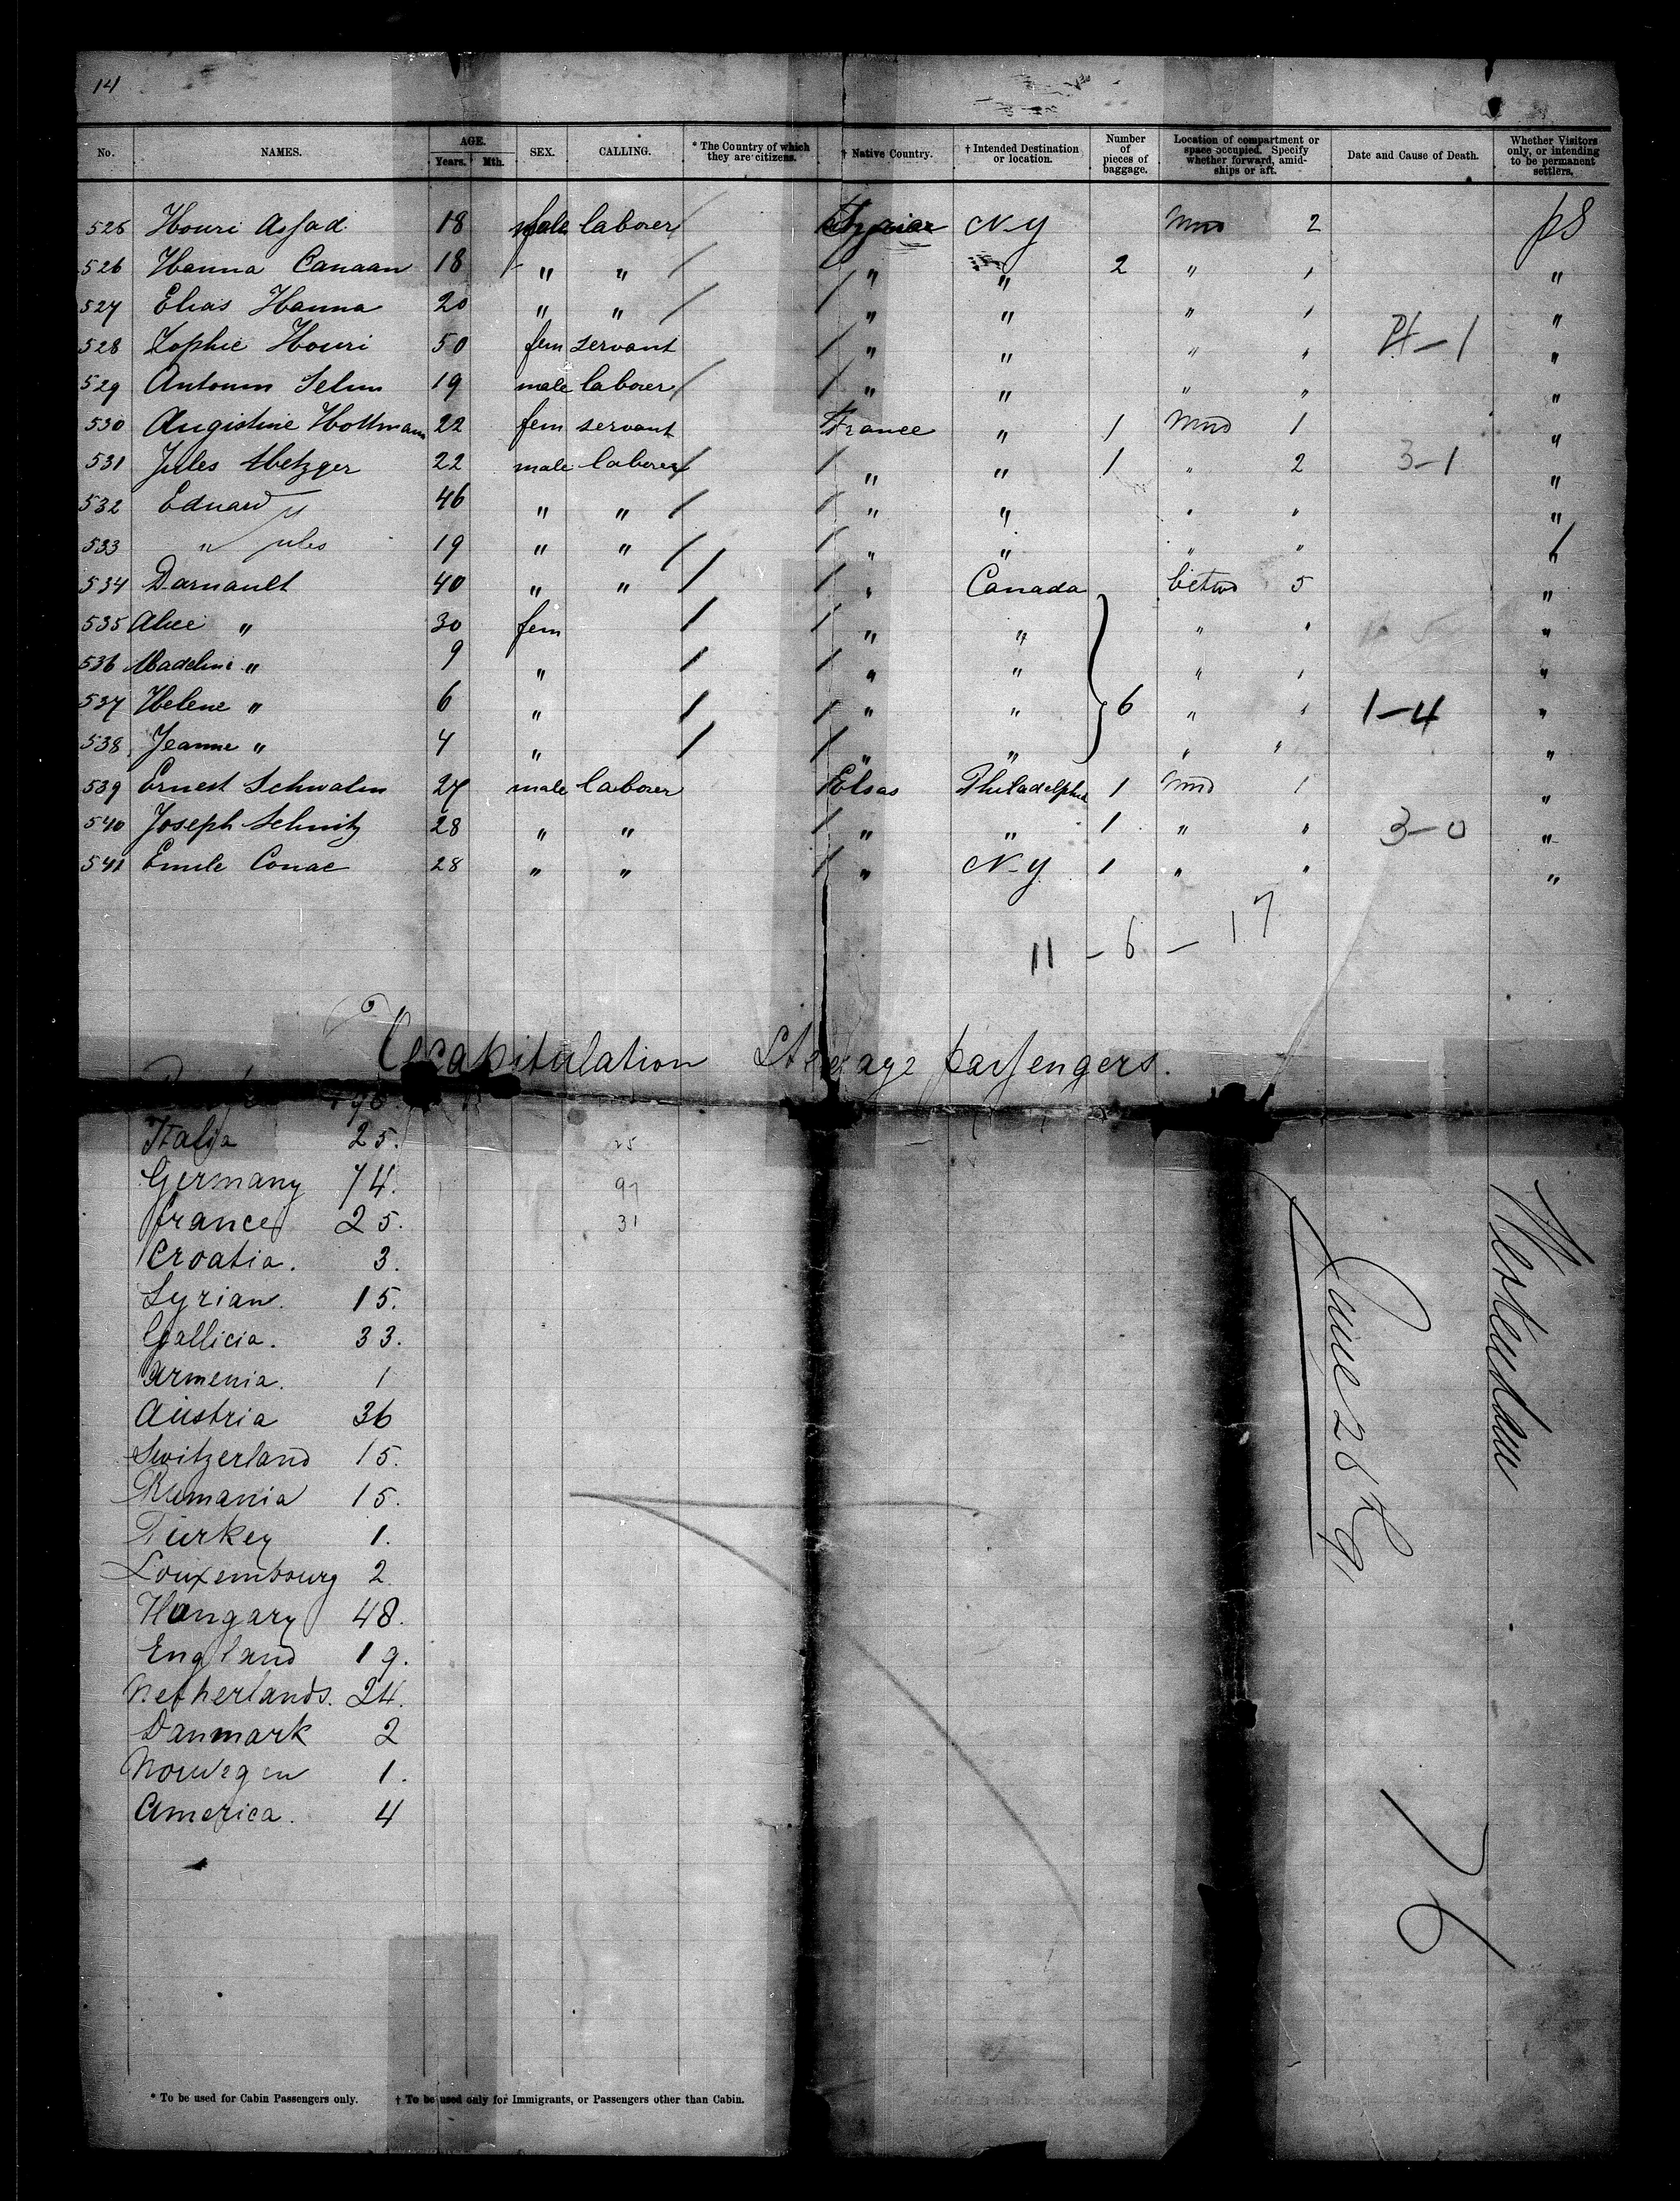 14
No. NAMES. AGE. Years. Mth. SEX. CALLING. * The Country of which they are citizens. † Native Country. † Intended Destination or location. Number of pieces of baggage. Location of compartment or space occupied. Specify whether forward, amidships or aft. Date and Cause of Death. Whether Visitors only, or intending to be permanent settlers.
525 Houri Assad 18 male laborer N-Y 2 pS
526 Hanna Canaan 18 " " " " 2 " " "
527 Elias Hanna 20 " " " " " " "
528 Sophie Houri 50 fem servant " " " " 4-1 "
529 Antoum Selim 19 male laborer " " " " "
530 Augistine Hottmann 22 fem servant France " 1 1 "
531 Jules Metzger 22 male laborer " " 1 " 2 3-1 "
532 Eduard " 46 " " " " " " "
533 " Jules 19 " " " " " " "
534 Darnault 40 " " " Canada betwd 5 "
535 Alice " 30 fem " " " " "
536 Madeline " 9 " " " " " "
537 Helene " 6 " " " 6 " " 1-4 "
538 Jeanne " 4 " " " " " "
539 Ernest Schwalm 27 male laborer Elsas Philadelphia 1 1 "
540 Joseph Schmitz 28 " " " " 1 " " 3-0 "
541 Emile Conac 28 " " " N-Y 1 " " "
11 - 6 - 17
Recapitulation Steerage passengers.
Italia 25.
Germany 74. 97
france 25. 31
Croatia. 3.
Syrian. 15.
Gallicia. 33.
Armenia. 1
Austria 36
Switzerland 15.
Rumania 15.
Turkey 1.
Louxembourg 2
Hungary 48.
England 19.
Netherlands. 24.
Danmark 2
Norwegen 1.
America. 4
Westerdam
June 26th 91
76
* To be used for Cabin Passengers only. † To be used only for Immigrants, or Passengers other than Cabin.